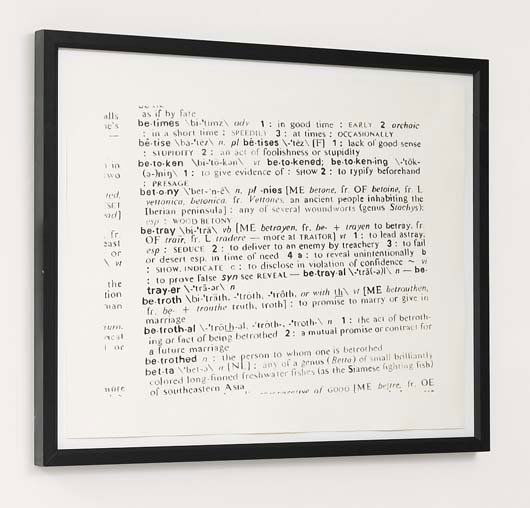 alls
as if by fate
he's
be·times \bi-'tīmz\ adv 1 : in good time : EARLY 2 archaic
—
: in a short time : SPEEDILY 3 : at times : OCCASIONALLY
bê·tise \bā-'tēz\ n, pl bê·tises \-'tēz\ [F] 1 : lack of good sense
: STUPIDITY 2 : an act of foolishness or stupidity
in
be·to·ken \bi-'tō-kən\ vt be·to·kened; be·to·ken·ing \-'tōk-
two
(ə-)niŋ\ 1 : to give evidence of : SHOW 2 : to typify beforehand
: PRESAGE
ted,
bet·o·ny \'bet-ᵊn-ē\ n, pl -nies [ME betone, fr. OF betoine, fr. L
SET
vettonica, betonica, fr. Vettones, an ancient people inhabiting the
Iberian peninsula] : any of several woundworts (genus Stachys);
esp : WOOD BETONY
fr.
be·tray \bi-'trā\ vb [ME betrayen, fr. be- + trayen to betray, fr.
east
OF traïr, fr. L tradere — more at TRAITOR] vt 1 : to lead astray,
or
esp : SEDUCE 2 : to deliver to an enemy by treachery 3 : to fail
vi
or desert esp. in time of need 4 a : to reveal unintentionally b
: SHOW, INDICATE c : to disclose in violation of confidence ~ vi
: to prove false syn see REVEAL — be·tray·al \-'trā(-ə)l\ n — be·
the
tray·er \-'trā-ər\ n
tion
be·troth \bi-'träth, -'trōth, -'trȯth, or with th\ vt [ME betrouthen,
man
fr. be- + trouthe truth, troth] : to promise to marry or give in
marriage
be·troth·al \-'trōth-əl, -'trȯth-, -'troth-\ n 1 : the act of betroth-
ing or fact of being betrothed 2 : a mutual promise or contract for
or
a future marriage
be·trothed n : the person to whom one is betrothed
bet·ta \'bet-ə\ n [NL] : any of a genus (Betta) of small brilliantly
colored long-finned freshwater fishes (as the Siamese fighting fish)
more
of southeastern Asia
of GOOD [ME bettre, fr. OE